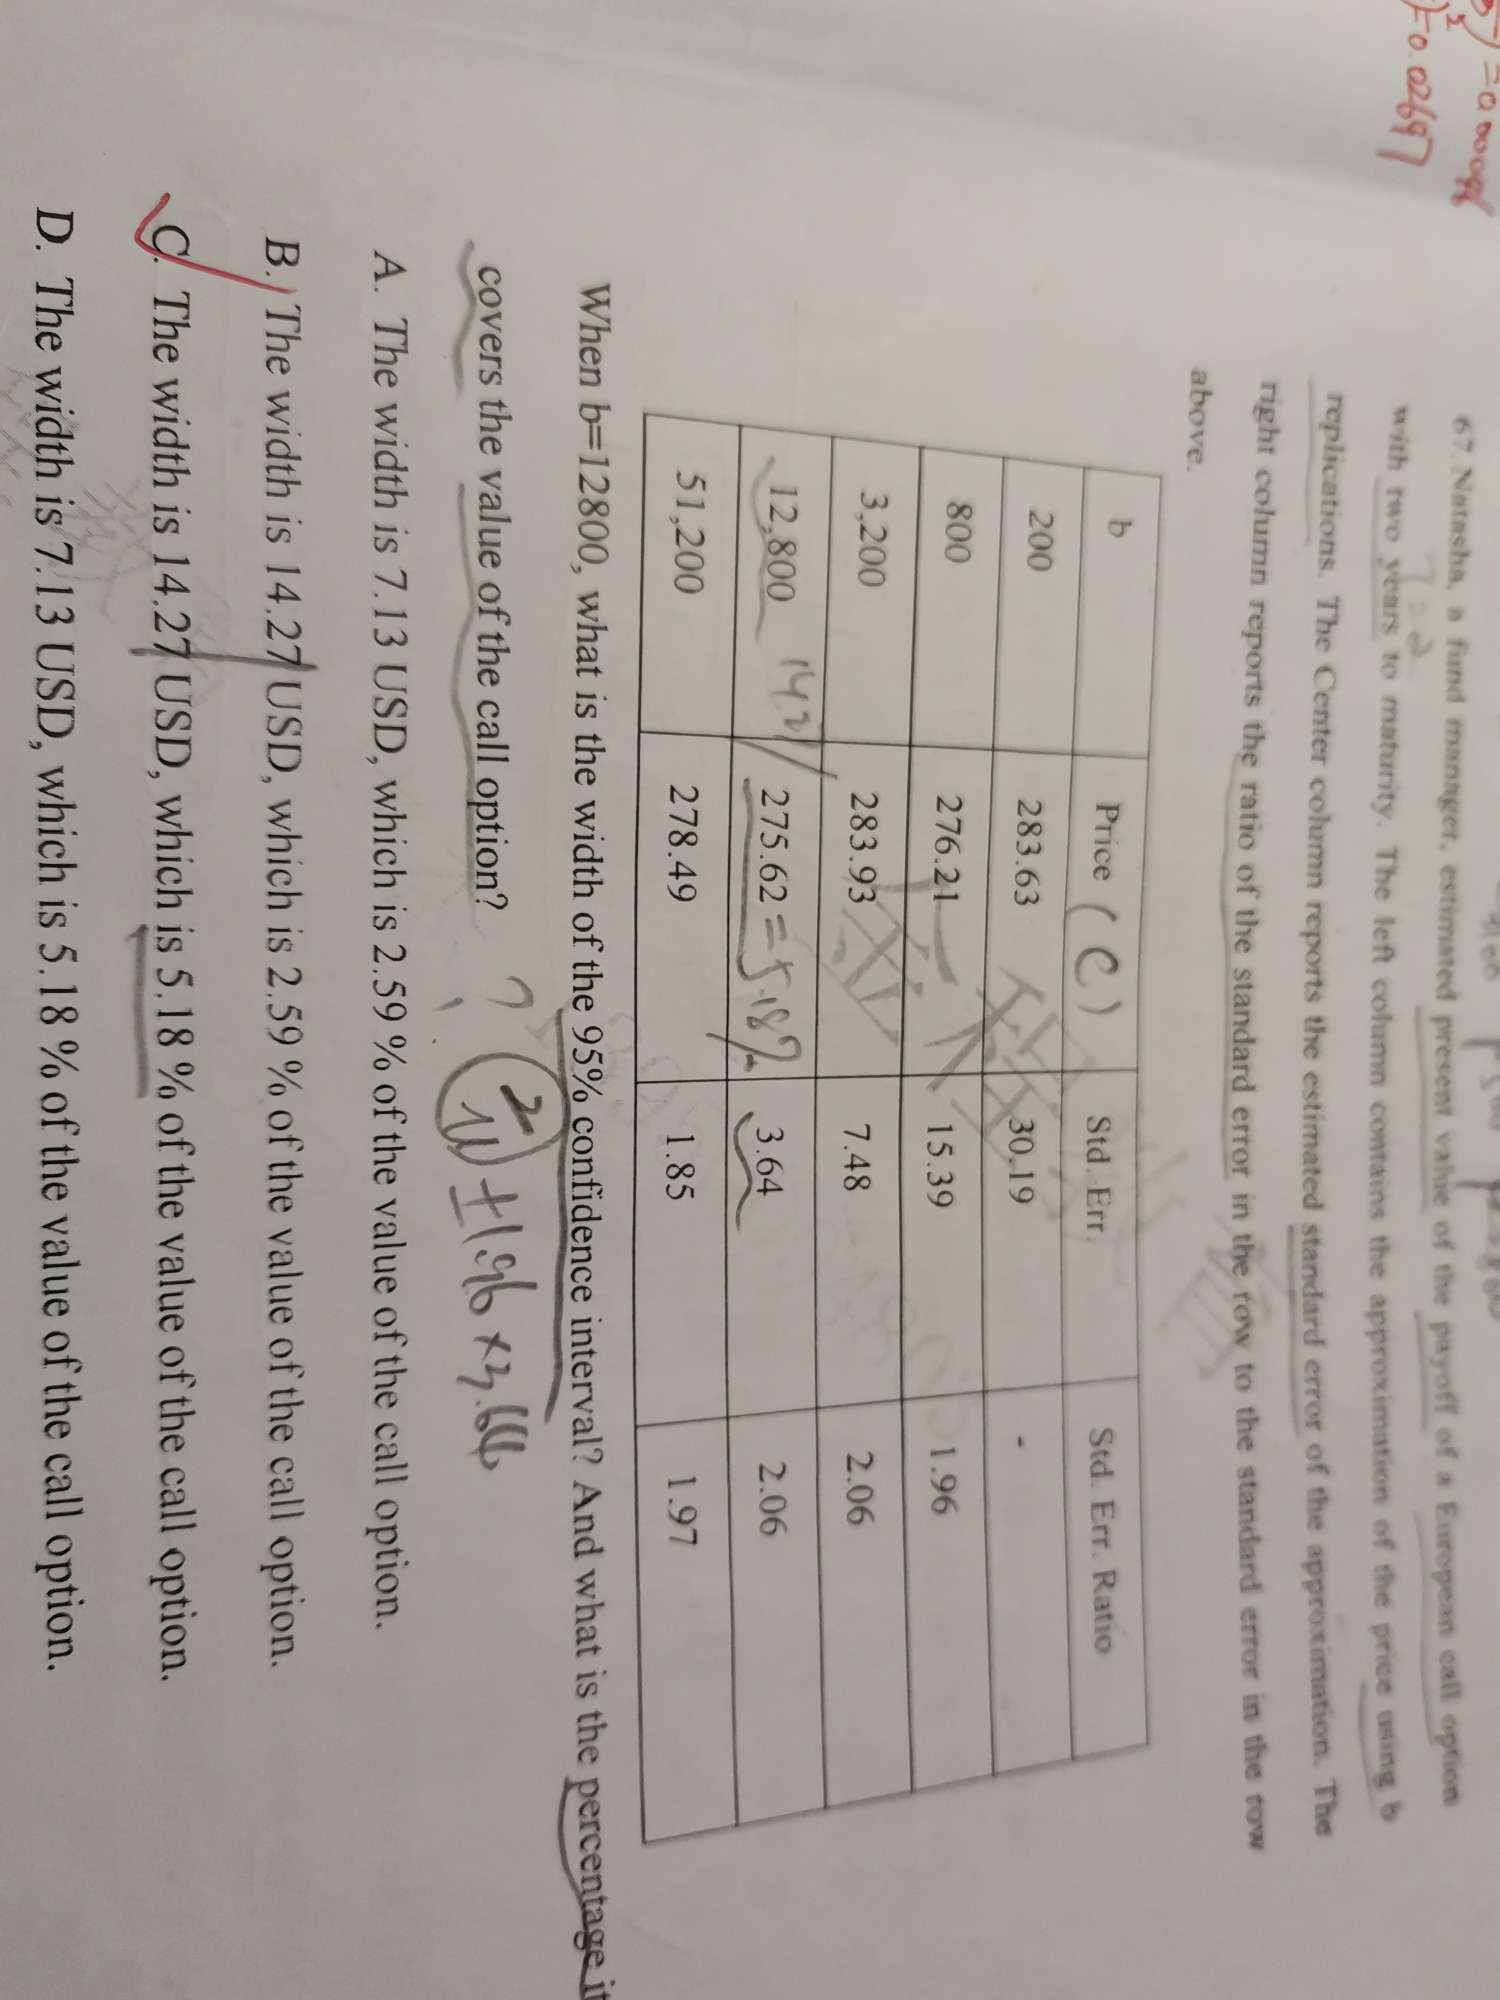 =0.02697
67. Natasha, a fund manager, estimated present value of the payoff of a European call option
with two years to maturity. The left column contains the approximation of the price using b
replications. The Center column reports the estimated standard error of the approximation. The
right column reports the ratio of the standard error in the row to the standard error in the row
above.
b Price (C) Std. Err. Std. Err. Ratio
200 283.63 30.19 -
800 276.21 15.39 1.96
3,200 283.93 7.48 2.06
12,800 275.62 =5.18% 3.64 2.06
51,200 278.49 1.85 1.97
When b=12800, what is the width of the 95% confidence interval? And what is the percentage it
covers the value of the call option? ?
±1.96×3.64
A. The width is 7.13 USD, which is 2.59 % of the value of the call option.
B. The width is 14.27 USD, which is 2.59 % of the value of the call option.
C. The width is 14.27 USD, which is 5.18 % of the value of the call option.
D. The width is 7.13 USD, which is 5.18 % of the value of the call option.